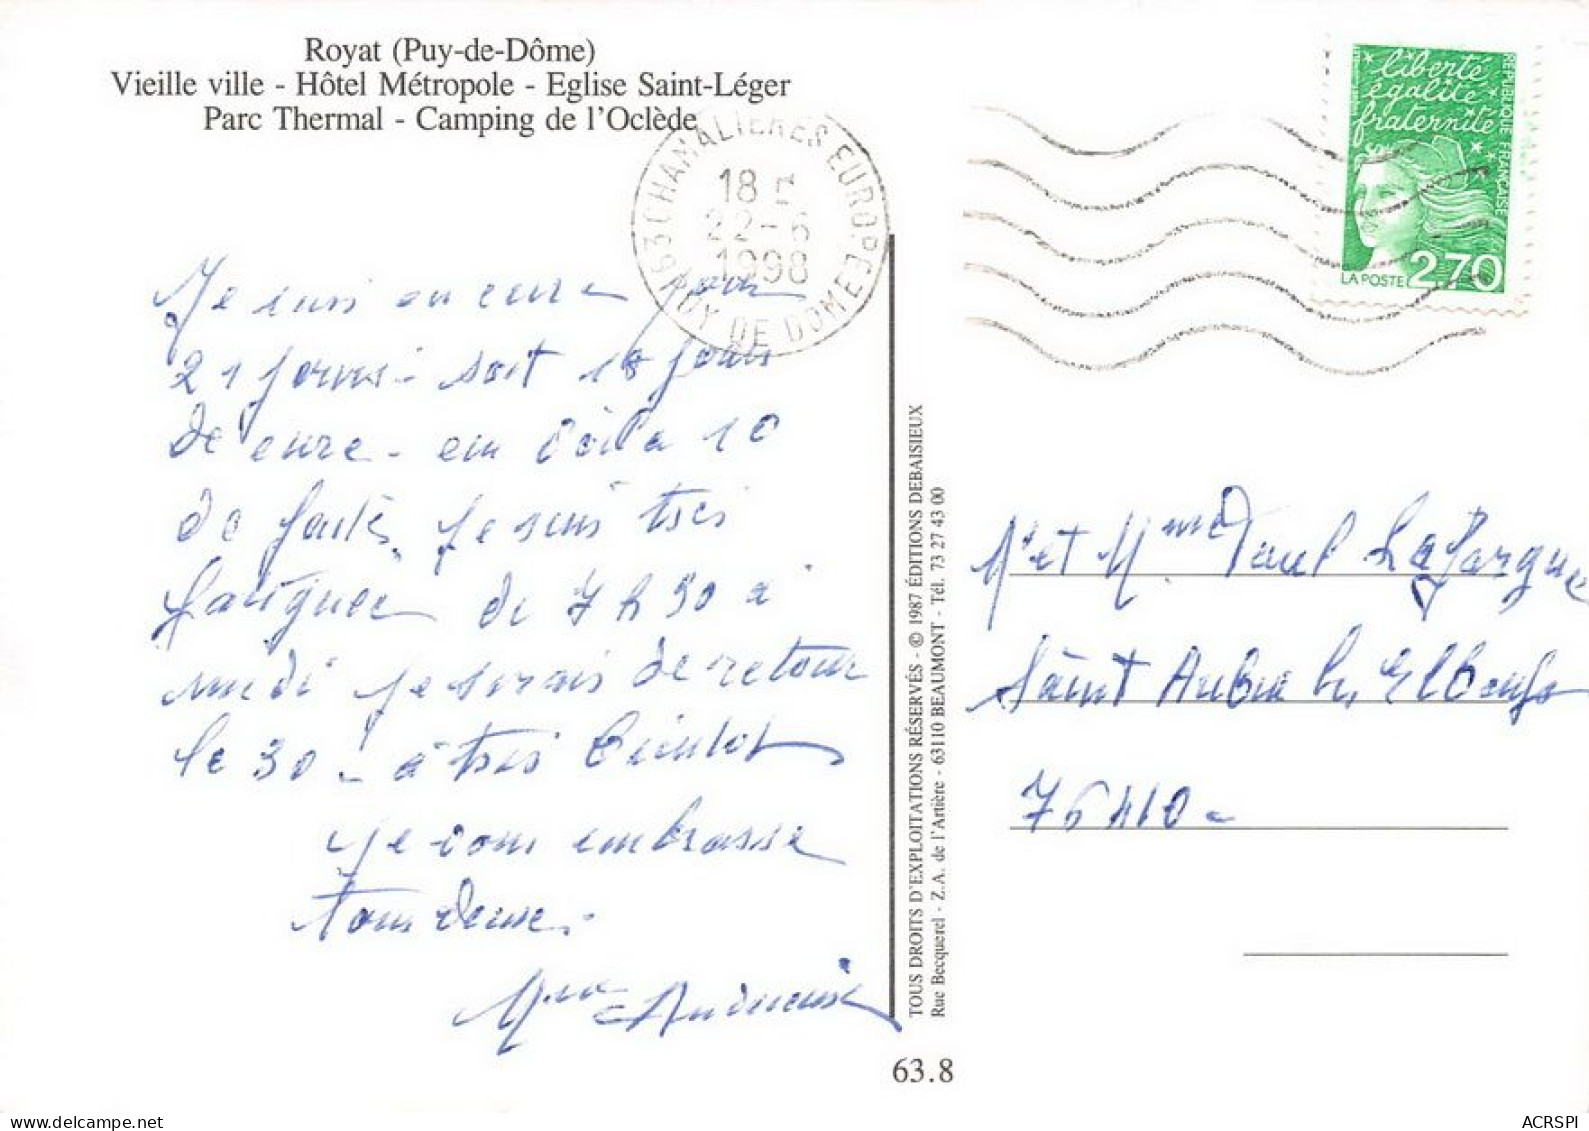 Royat (Puy-de-Dôme)
Vieille ville - Hôtel Métropole - Eglise Saint-Léger
Parc Thermal - Camping de l'Oclède
63 CHAMALIERES EUROPE
18 H
22-6
1998
PUY DE DOME
liberté
égalité
fraternité
REPUBLIQUE FRANÇAISE
LA POSTE 2,70
Je suis en cure pour
21 jours - soit 18 jours
de cure - en voila 10
de faits. Je suis très
fatiguée de 7 h 30 a
midi je serais de retour
le 30 - a très bientot
je vous embrasse
tous deux.
Mme
TOUS DROITS D'EXPLOITATIONS RÉSERVÉS - © 1987 ÉDITIONS DEBAISIEUX
Rue Becquerel - Z.A. de l'Artière - 63110 BEAUMONT - Tél. 73 27 43 00
Mr et Mme Paul Lafargue
Saint Aubin les Elbeuf
76410 -
63.8
delcampe.net
ACRSPI